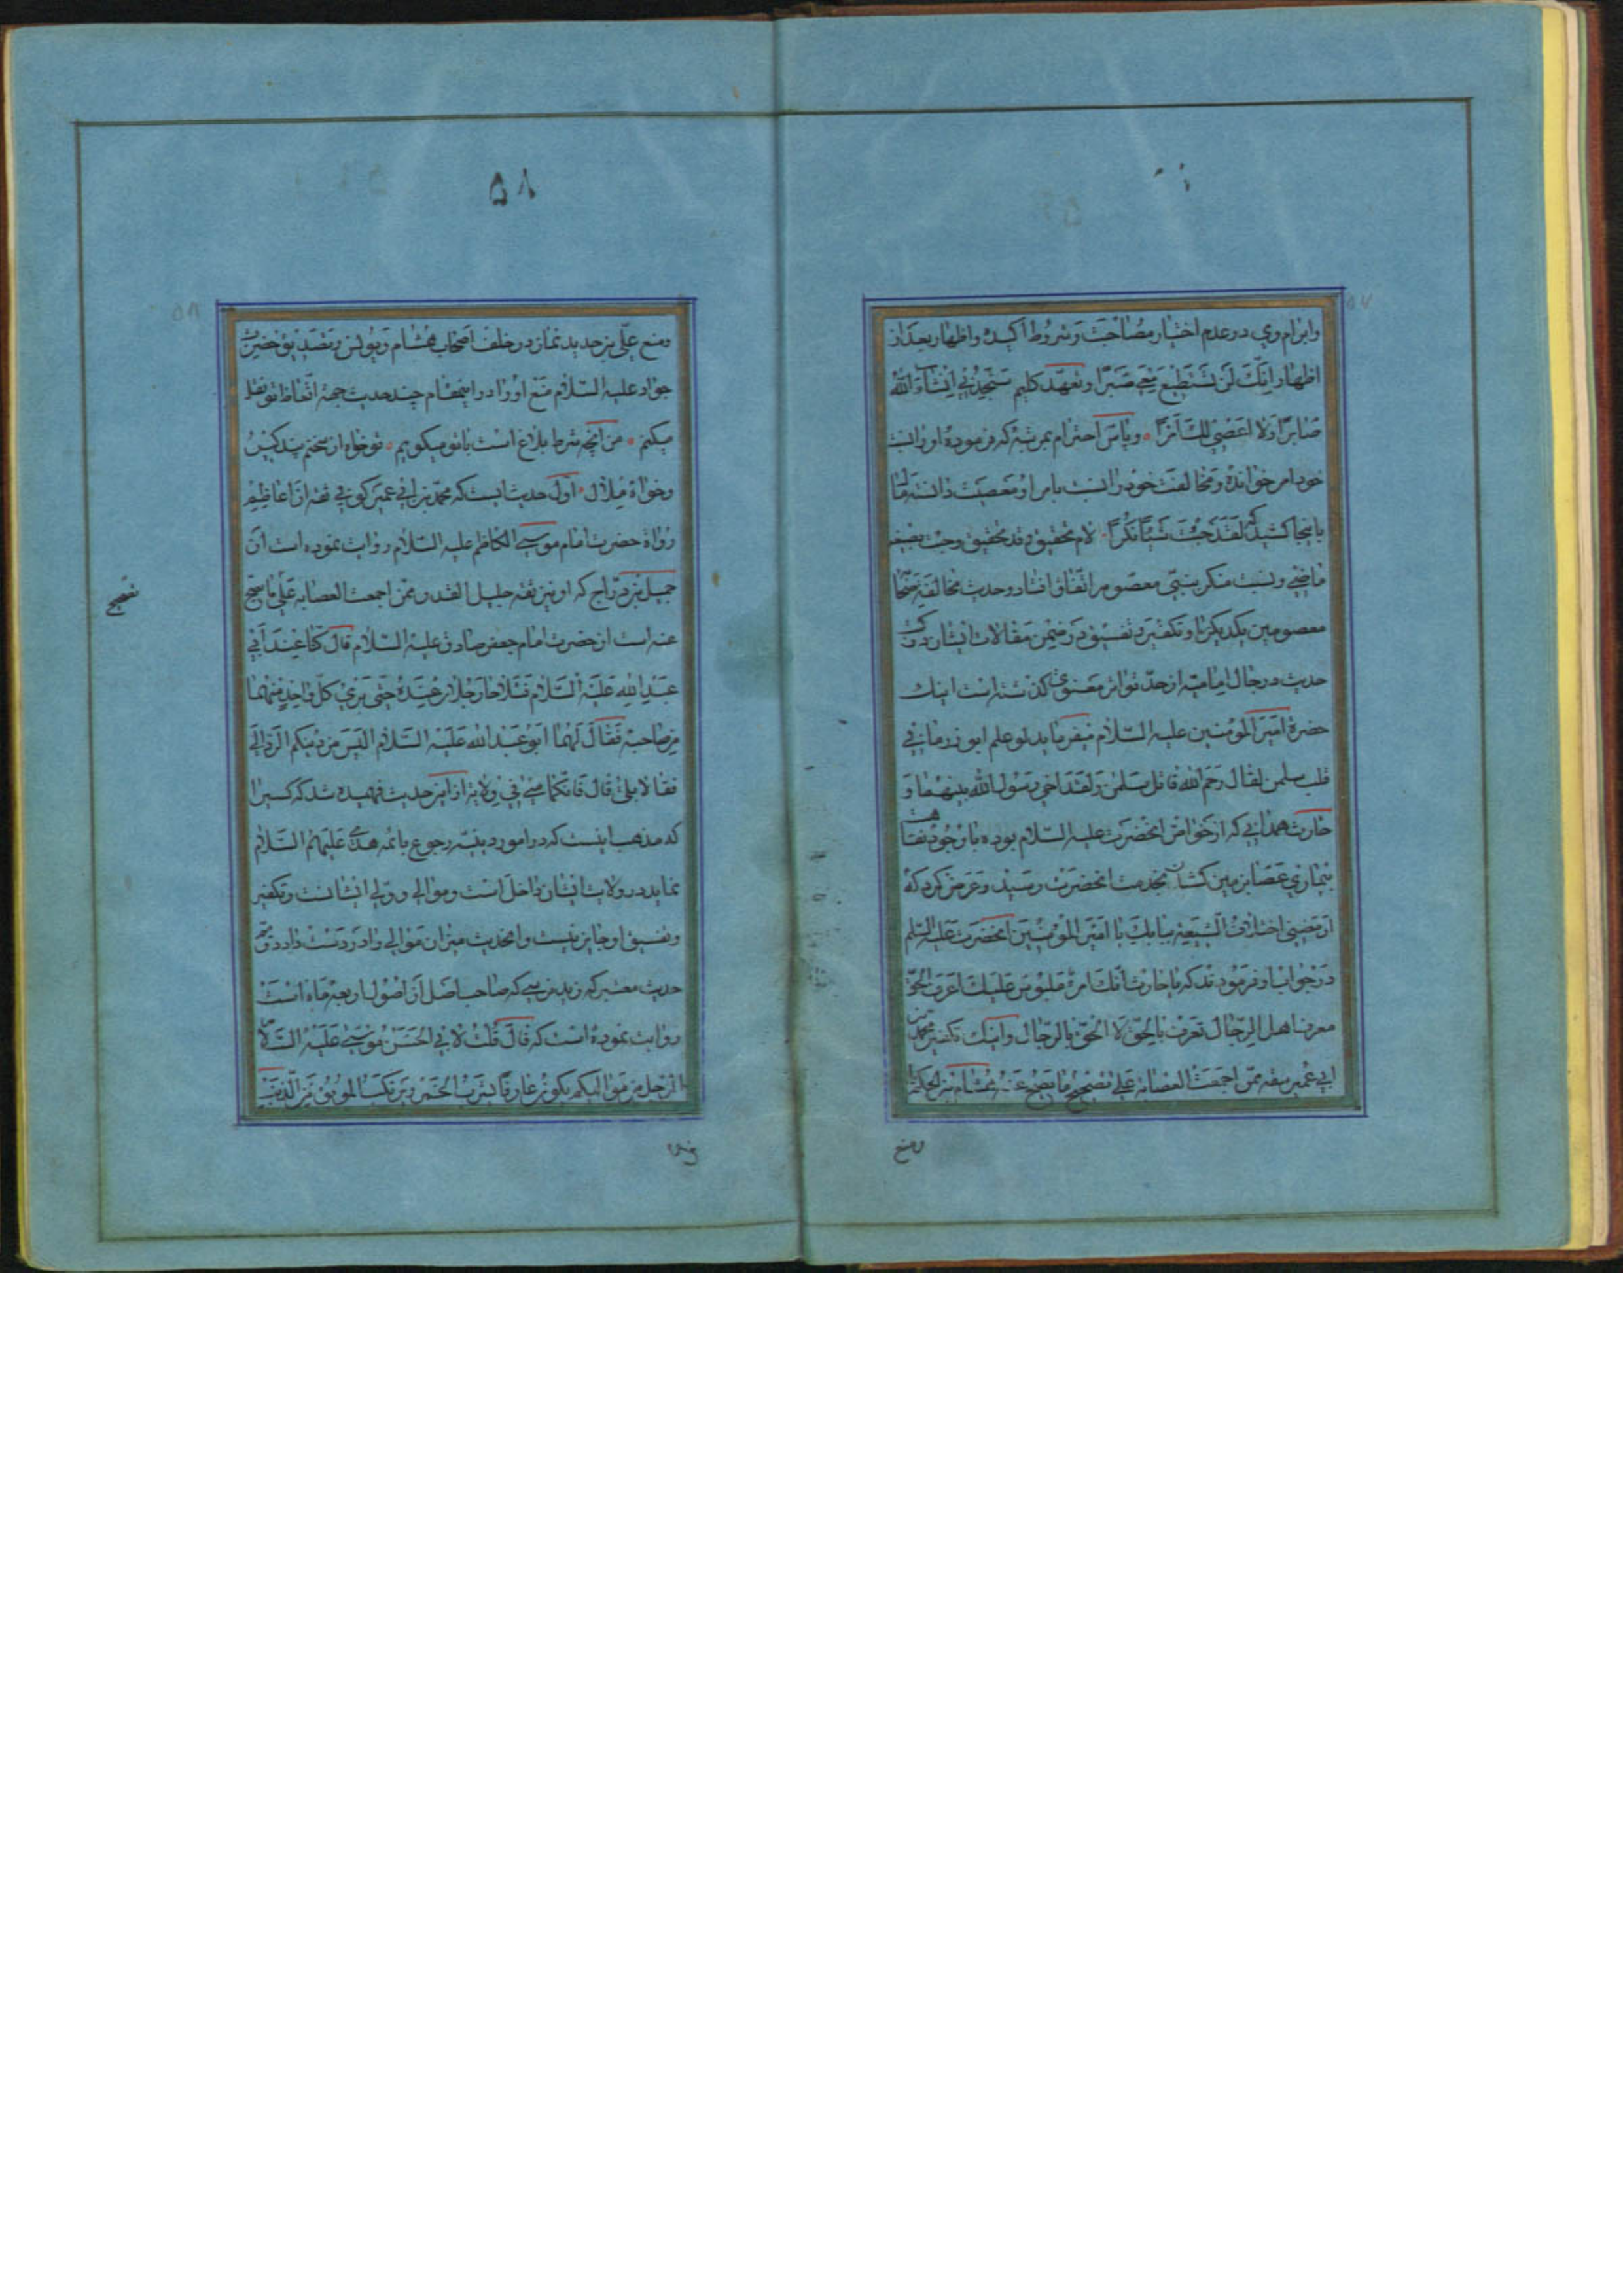 وابرام وی در عدم اختیار مصاحبت و شروط اکیده و اظهار بعد از
اظهار انک لن تستطیع معی صبرا و تعهد کلیم ستجدنی انشاء الله
صابرا ولا اعصی لک امرا و پاس احترام بمرتبهٔ که فرمودهٔ او را نسبت
خود امر خوانده و مخالفت خود را نسبت بامر او معصیت دانسته
باینجا کشید که لقد جئت شیئا نکرا لام تحقیق و قد تحقیق وجئت بصیغه
ماضی و نسبت منکر بنبی معصوم اتفاق افتاد و حدیث مخالفة
معصومین یکدیکر را و تکفیر و تفسیق در ضمن مقالات ایشان
حدیث در رجال امامیه از حد تواتر معنوی کذشته است اینک
حضرة امیر المومنین علیه السلام میفرماید لو علم ابو ذر ما فی
قلب سلمن لقال رحم الله قاتل سلمن ولقد اخی رسول الله بینهما و
حارث همدانی که از خواص انحضرت علیه السلام بوده با وجود نقاهت
بیماری عصا بزمین کشان بخدمت انحضرت رسید و عرض کرد که
ارمضنی اختلاف الشیعه ببابک یا امیر المومنین انحضرت علیه السلم
در جواب او فرمودند که یا حارث انک امرؤ ملبوس علیک اعرف الحق
تعرف اهل الرجال تعرف بالحق لا الحق بالرجال و اینک تکفیر محمد بن
ابی عمیر ثقه ممن اجمعت العصابه علی تصحیح ما یصح عنه هشام بن الحکم
ومنع
۵۸
ومنع علی بن حدید نماز در خلف اصحاب هشام و یونس و تصدیق حضرت
جواد علیه السلام منع او را در اینمقام چند حدیث جهة اتعاظ تو نقل
میکنم من آنچه شرط بلاغ است با تو میکویم تو خواه از سخنم پند کیر
وخواه ملال اول حدیث است که محمد بن ابی عمیر کوفی ثقه از اعاظم
رواة حضرت امام موسی الکاظم علیه السلام روایت نموده است از
جمیل بن دراج که او نیز ثقه جلیل القدر و ممن اجمعت العصابه علی ما یصح
تصحیح
عنه است از حضرت امام جعفر صادق علیه السلام قال کنا عند ابی
عبد الله علیه السلام فتلاحا رجلان عنده حتی بری کل واحد منهما
من صاحبه فقال لهما ابو عبد الله علیه السلام الیس من دینکم الرد الی
فقالا بلی قال فانکما منی فی ولایة از این حدیث فهمیده شد که کسیرا
که مذهب اینست که در امور دینیه رجوع بائمه هدی علیهم السلام
نماید در ولایت ایشان داخل است و موالی و ولی ایشانست و تکفیر
و تفسیق او جایز نیست و انحدیث میزان موالی را در دست دارد
حدیث معتبر که زید نرسی که صاحب اصل از اصول اربعه ماه است
روایت نموده است که قال قلت لابی الحسن موسی علیه السلام
الرجل من موالیکم یکون عارفا یشرب الخمر و یرتکب الموبق من الذنب